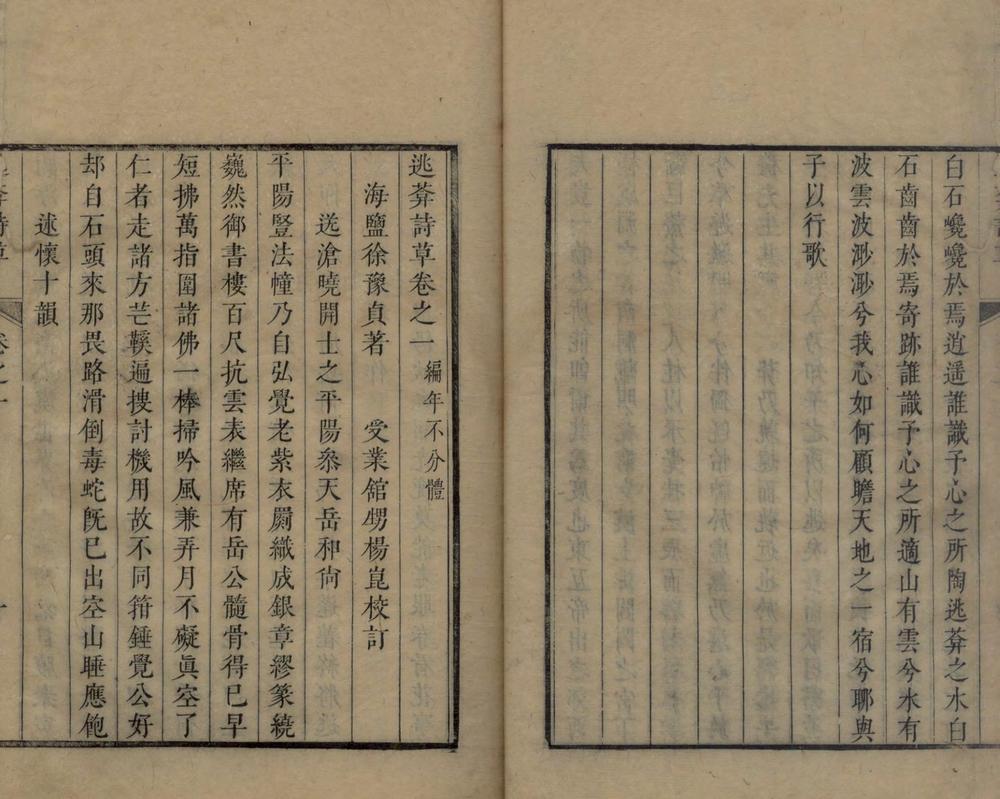 白石巉巉於焉逍遥誰識予心之所陶逃葊之水白
石齒齒於焉寄跡誰識予心之所適山有雲兮水有
波雲波渺渺兮我心如何顧瞻天地之一宿兮聊與
子以行歌
逃葊詩草卷之一 編年不分體
海鹽徐豫貞著 受業舘甥楊崑校訂
送滄曉開士之平陽叅天岳和尙
平陽豎法幢乃自弘覺老紫衣罽織成銀章繆篆繞
巍然御書樓百尺抗雲表繼席有岳公髓骨得已早
短拂萬指圍諸佛一棒掃吟風兼弄月不礙眞空了
仁者走諸方芒鞵遍搜討機用故不同箝錘覺公好
却自石頭來那畏路滑倒毒蛇旣已出空山睡應飽
述懷十韻
葊詩草 卷之一 一